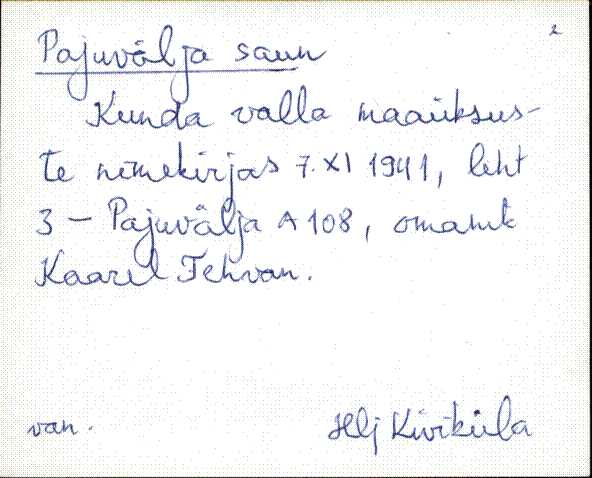 2
Pajuvälja saun
Kunda valla maaüksus-
te nimekirjas 7. XI 1941, leht
3 – Pajuvälja A 108, omanik
Kaarel Tehvan.
van.
Hlj Kiviküla